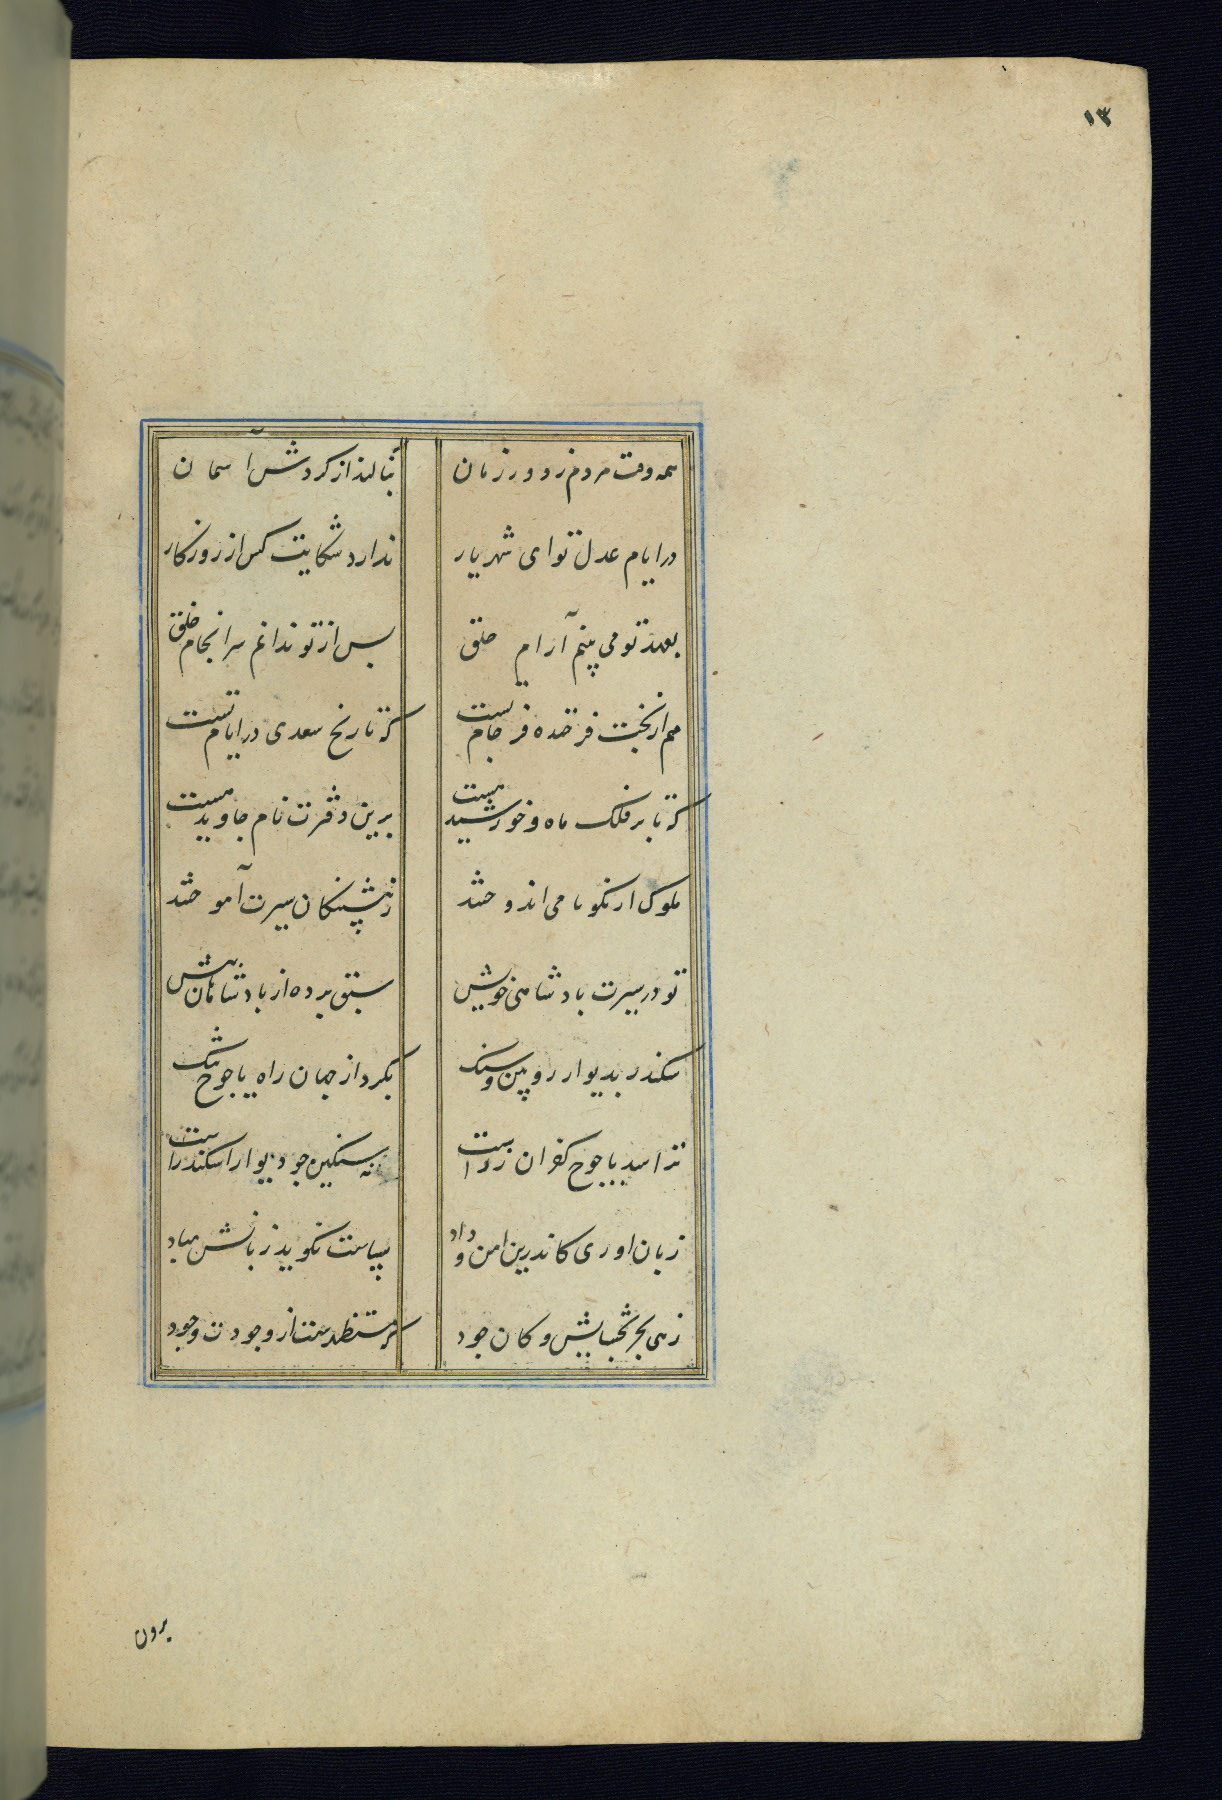 ١٣
همه وقت مردم ز دور زمان بنالند از گردش آسمان
در ایام عدل تو ای شهریار ندارد شکایت کس از روزگار
بعهد تو می بینم آرام خلق پس از تو ندانم سرانجام خلق
هم از بخت فرخنده فرجام تست که تاریخ سعدی در ایام تست
که تا بر فلک ماه و خورشید هست برین دفترت نام جاوید هست
ملوک ار نکو نامی اندوختند ز پیشینگان سیرت آموختند
تو در سیرت پادشاهی خویش سبق برده از پادشاهان پیش
سکندر بدیوار رویین و سنگ بکرد از جهان راه یاجوج تنگ
ترا سد یاجوج کفر از زرست نه سنگین چو دیوار اسکندرست
زبان اوری کاندرین امن و داد سپاست نگوید زبانش مباد
زهی بحر بخشایش و کان جود که مستظهرست از وجودت وجود
برون